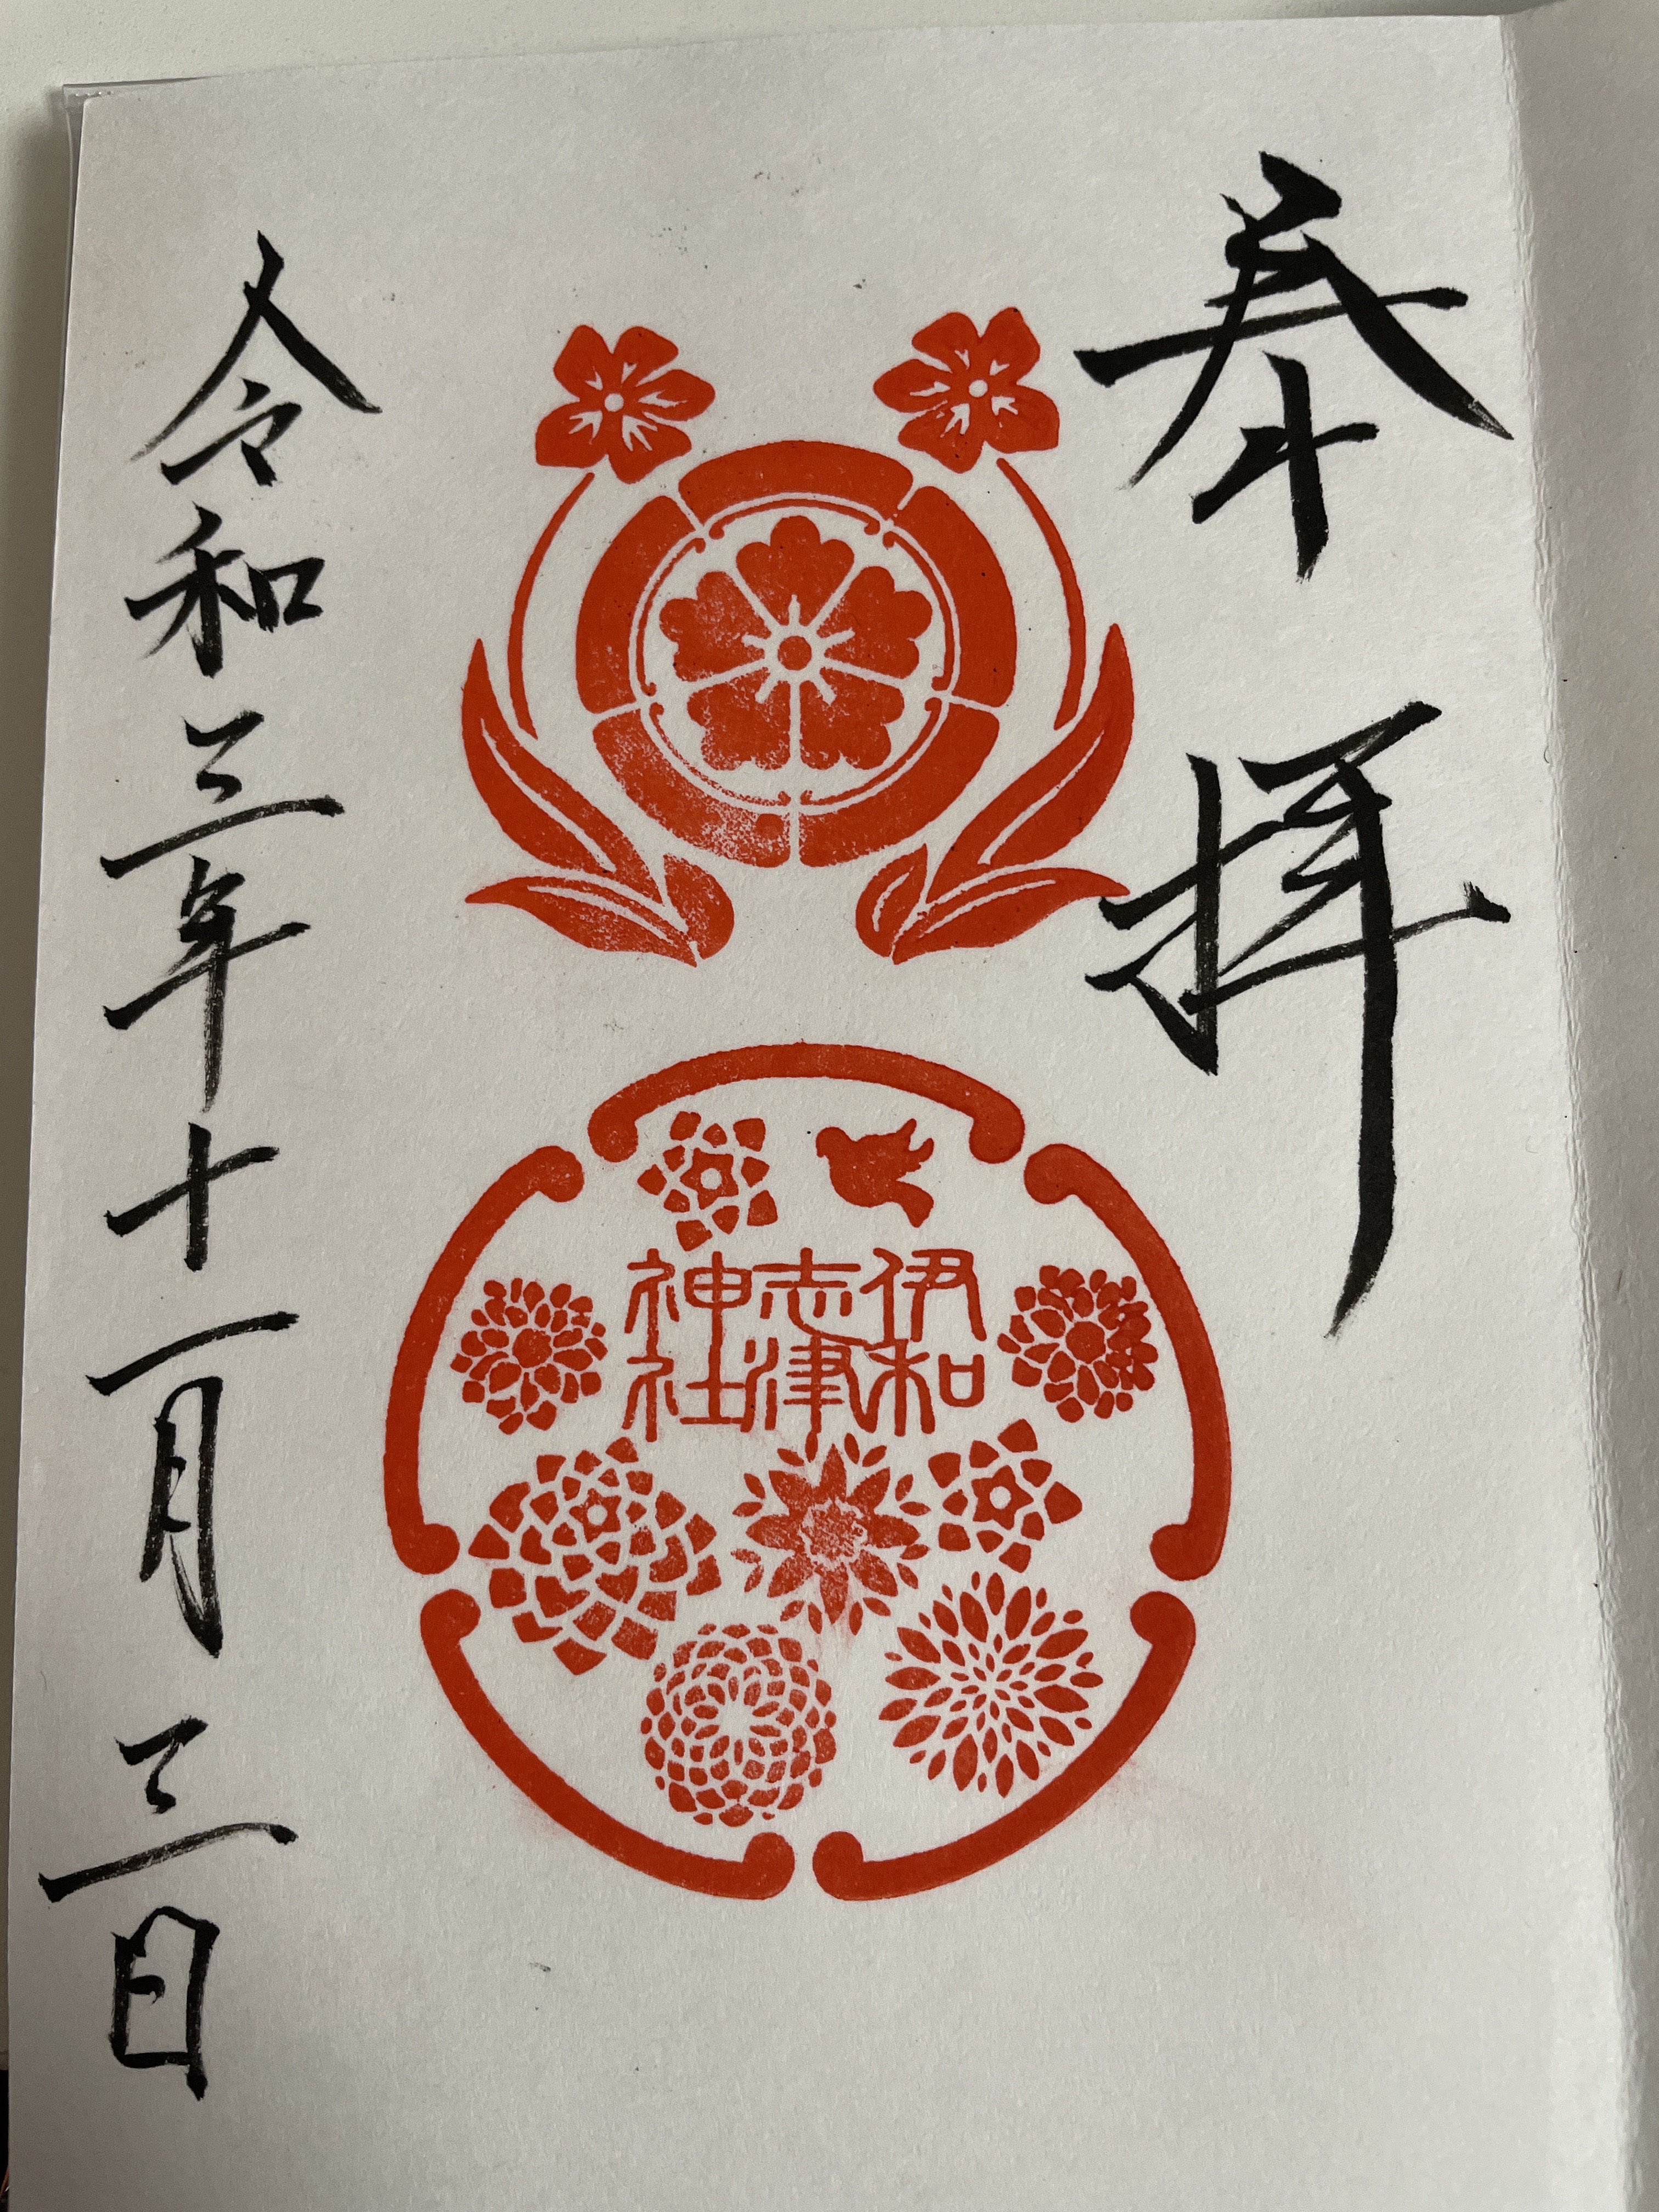 奉拝
伊和
志津
神社
令和三年十一月三日